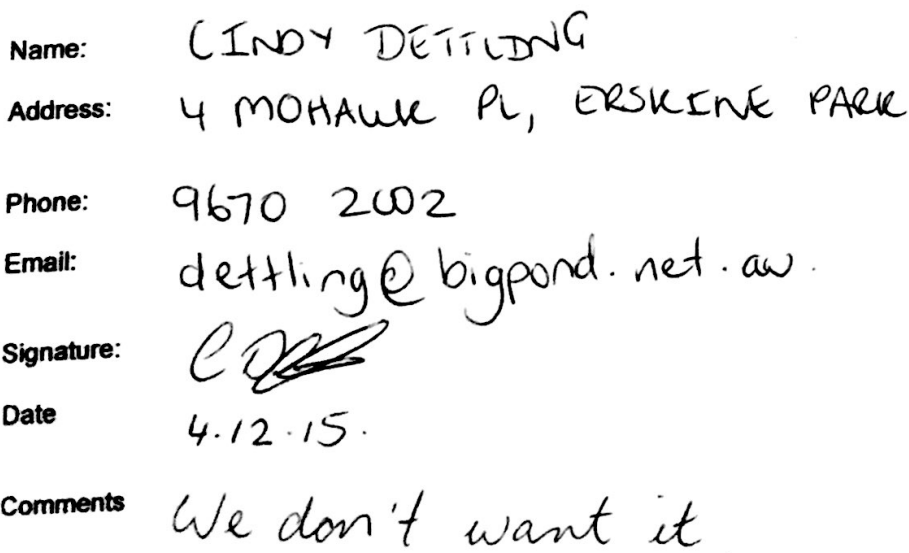 Name: CINDY DETTLING
Address: 4 MOHAWK PL, ERSKINE PARK
Phone: 9670 2002
Email: dettling@bigpond.net.au.
Signature:
Date 4.12.15.
Comments We don't want it